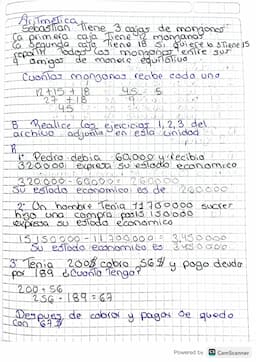 Aritmetica
Sebastian Tiene 3 cajas de manganas
la primera caja Tiene 12 manganas
la segunda caja Tiene 18 si quiere la 3 tiene 15
repartir Todos las manganas entre sus
5 amigos de manera equitativa
Cuantas manganas recibe cada uno
12 + 15 + 18 45 5
27 + 18 9
45
B Realice los ejercicios 1, 2, 3 del
archivo adjunto en esta unidad
R
1° Pedro debia 60,000 y recibio
320.000 expresa su estado economico
320.000 - 60,000 = 260.000
Su estado economico es de 260.000
2° Un hombre Tenia 11.700000 sucres
hizo una compra por 15.150000
expresa su estado economico
15,150000 - 11,700000 = 3,450000
Su estado economico es 3,450000
3 Tenia 200$ cobro 56$ y pago deuda
por 189 ¿Cuanto Tengo?
200 + 56
256 - 189 = 67
Despues de cobrar y pagar se quedo
con 67$
Powered by CS CamScanner